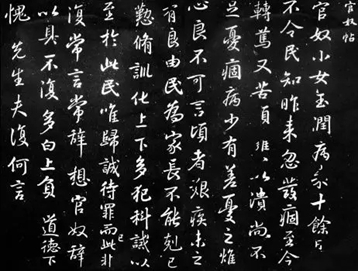 官奴帖
官奴小女玉潤病来十餘日了
不令民知昨来忽發痼至今
轉篤又苦頭癰以潰尚不
足憂痼病少有差憂之燋
心良不可言頃者艱疾未之
有良由民為家長不能剋己
懃脩訓化上下多犯科誡以
至於此民唯歸誠待罪而已此非
復常言常辭想官奴辭
以具不復多白上負道德下
愧先生夫復何言